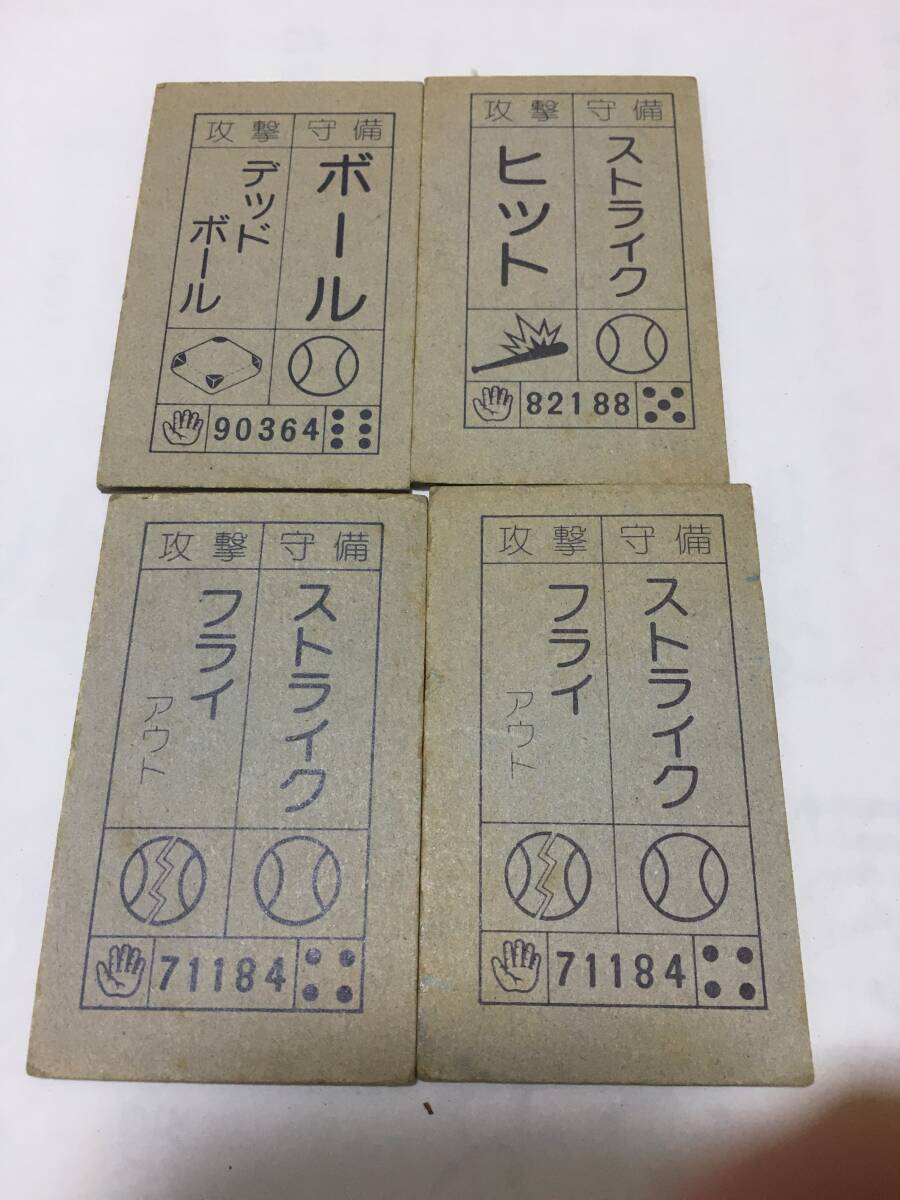 攻撃 守備
ボール
デッド
ボール
90364
攻撃 守備
ストライク
ヒット
82188
攻撃 守備
ストライク
フライ
アウト
71184
攻撃 守備
ストライク
フライ
アウト
71184